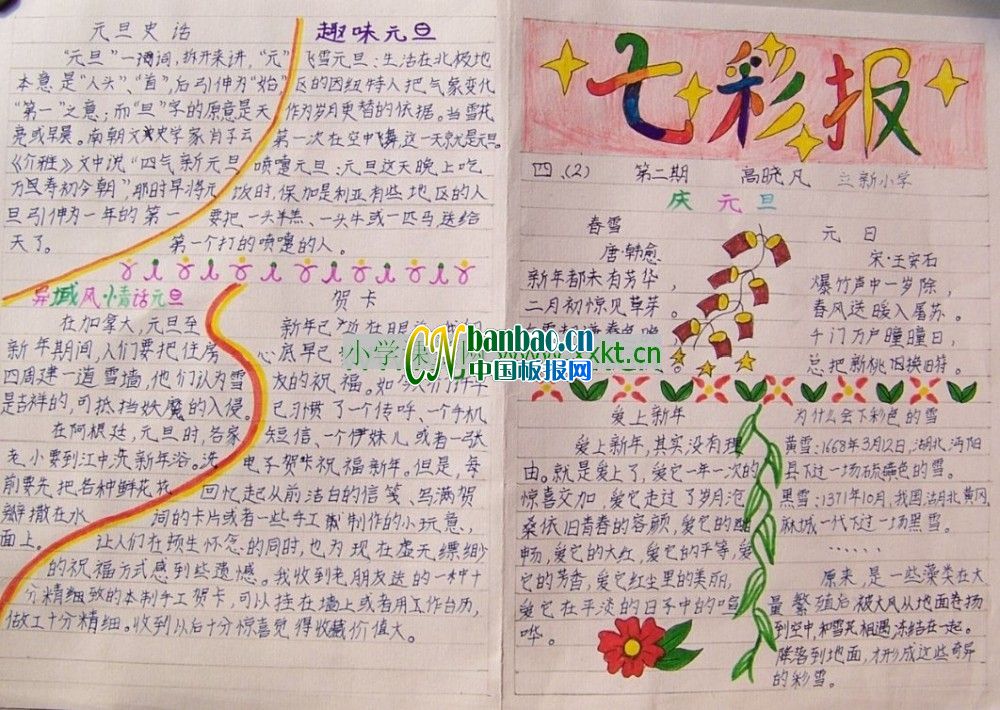 元旦史话
“元旦”一词,拆开来讲,“元”
本意是“人头”、“首”,后引伸为“始”
“第一”之意;而“旦”字的原意是天
亮或早晨。南朝文史学家肖子云
《介雅》文中说“四气新元旦
万民寿初今朝”那时早将元
旦引伸为一年的第一
天了。
趣味元旦
飞雪元旦:生活在北极地
区的因纽特人把气象变化
作为岁月更替的依据。当雪花
第一次在空中飞舞,这一天就是元旦。
喷嚏元旦:元旦这天晚上吃
饭时,保加利亚有些地区的人
要把一头羊羔、一头牛或一匹马送给
第一个打的喷嚏的人。
异域风情话元旦
在加拿大,元旦至
新年期间,人们要把住房
四周建一道雪墙,他们认为雪
是吉祥的,可抵挡妖魔的入侵。
在阿根廷,元旦时,各家
老小要到江中洗新年浴。洗
前要先把各种鲜花花
瓣撒在水
面上。
贺卡
新年已
心底早已
友的祝福。如今人们
已习惯了一个传呼、一个手机
短信、一个伊妹儿或者一张
电子贺卡祝福新年。但是,每
回忆起从前洁白的信笺、写满贺
词的卡片或者一些手工制作的小玩意,
让人们在顿生怀念的同时,也为现在虚无缥缈
的祝福方式感到些遗憾。我收到老朋友送的一种十
分精细致的本制手工贺卡,可以挂在墙上或者用工作台历,
做工十分精细。收到以后十分惊喜觉得收藏价值大。
七彩报
四、(2) 第二期 高晓凡 立新小学
庆元旦
春雪
唐·韩愈
新年都未有芳华,
二月初惊见草芽。
元日
宋·王安石
爆竹声中一岁除,
春风送暖入屠苏。
千门万户曈曈日,
总把新桃换旧符。
CN banbao.cn
中国板报网
www.xxkt.cn
爱上新年
爱上新年,其实没有理
由。就是爱上了,爱它一年一次的
惊喜交加,爱它走过了岁月沧
桑依旧青春的容颜,爱它的
畅,爱它的大红,爱它的平等,爱
它的芳香,爱它红尘里的美丽,
爱它在平淡的日子中的喧
哗。
为什么会下彩色的雪
黄雪:1668年3月12日,湖北,沔阳
县下过一场硫磺色的雪。
黑雪:1371年10月,我国湖北黄冈
麻城一代下过一场黑雪。
……
原来,是一些藻类在大
量繁殖后,被大风从地面卷扬
到空中,和雪花相遇,冻结在一起。
降落到地面,才形成这些奇异
的彩雪。